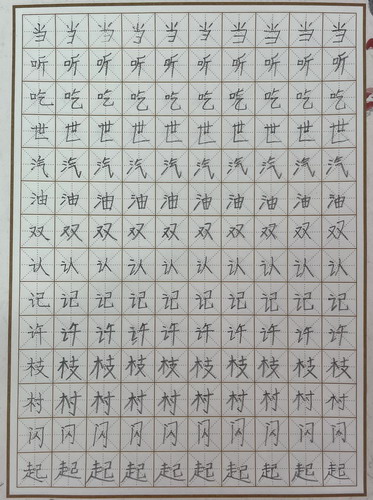 当当当当当当当当当当
听听听听听听听听听听
吃吃吃吃吃吃吃吃吃吃
世世世世世世世世世世
汽汽汽汽汽汽汽汽汽汽
油油油油油油油油油油
双双双双双双双双双双
认认认认认认认认认认
记记记记记记记记记记
许许许许许许许许许许
枝枝枝枝枝枝枝枝枝枝
村村村村村村村村村村
闪闪闪闪闪闪闪闪闪闪
起起起起起起起起起起